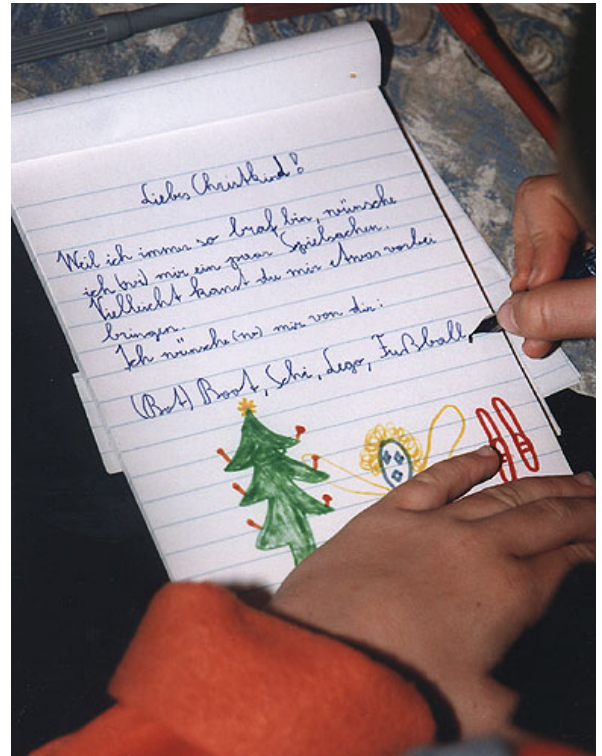 Liebes Christkind!
Weil ich immer so brav bin, wünsche
ich (bri) mir ein paar Spielsachen.
Vielleicht kannst du mir etwas vorbei
bringen.
Ich wünsche (no) mir von dir:
(Bot) Boot, Schi, Lego, Fußball,